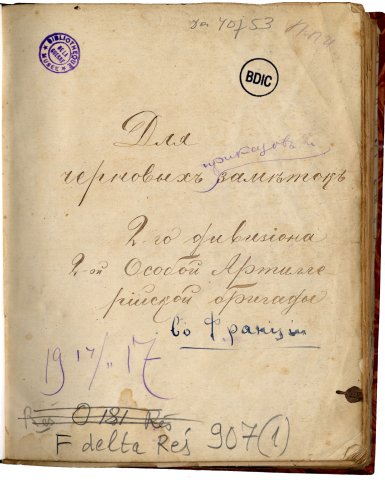 да 40/53
BIBLIOTHÈQUE
MUSÉE
DE LA
GUERRE
BDIC
Для
приказовъ и
черновыхъ замѣтокъ
2-го дивизiона
2-ой Особой Артилле
рiйской бригады
во Францiи
19 17/II 17
Res O 181 Rés
F delta Rés 907(1)